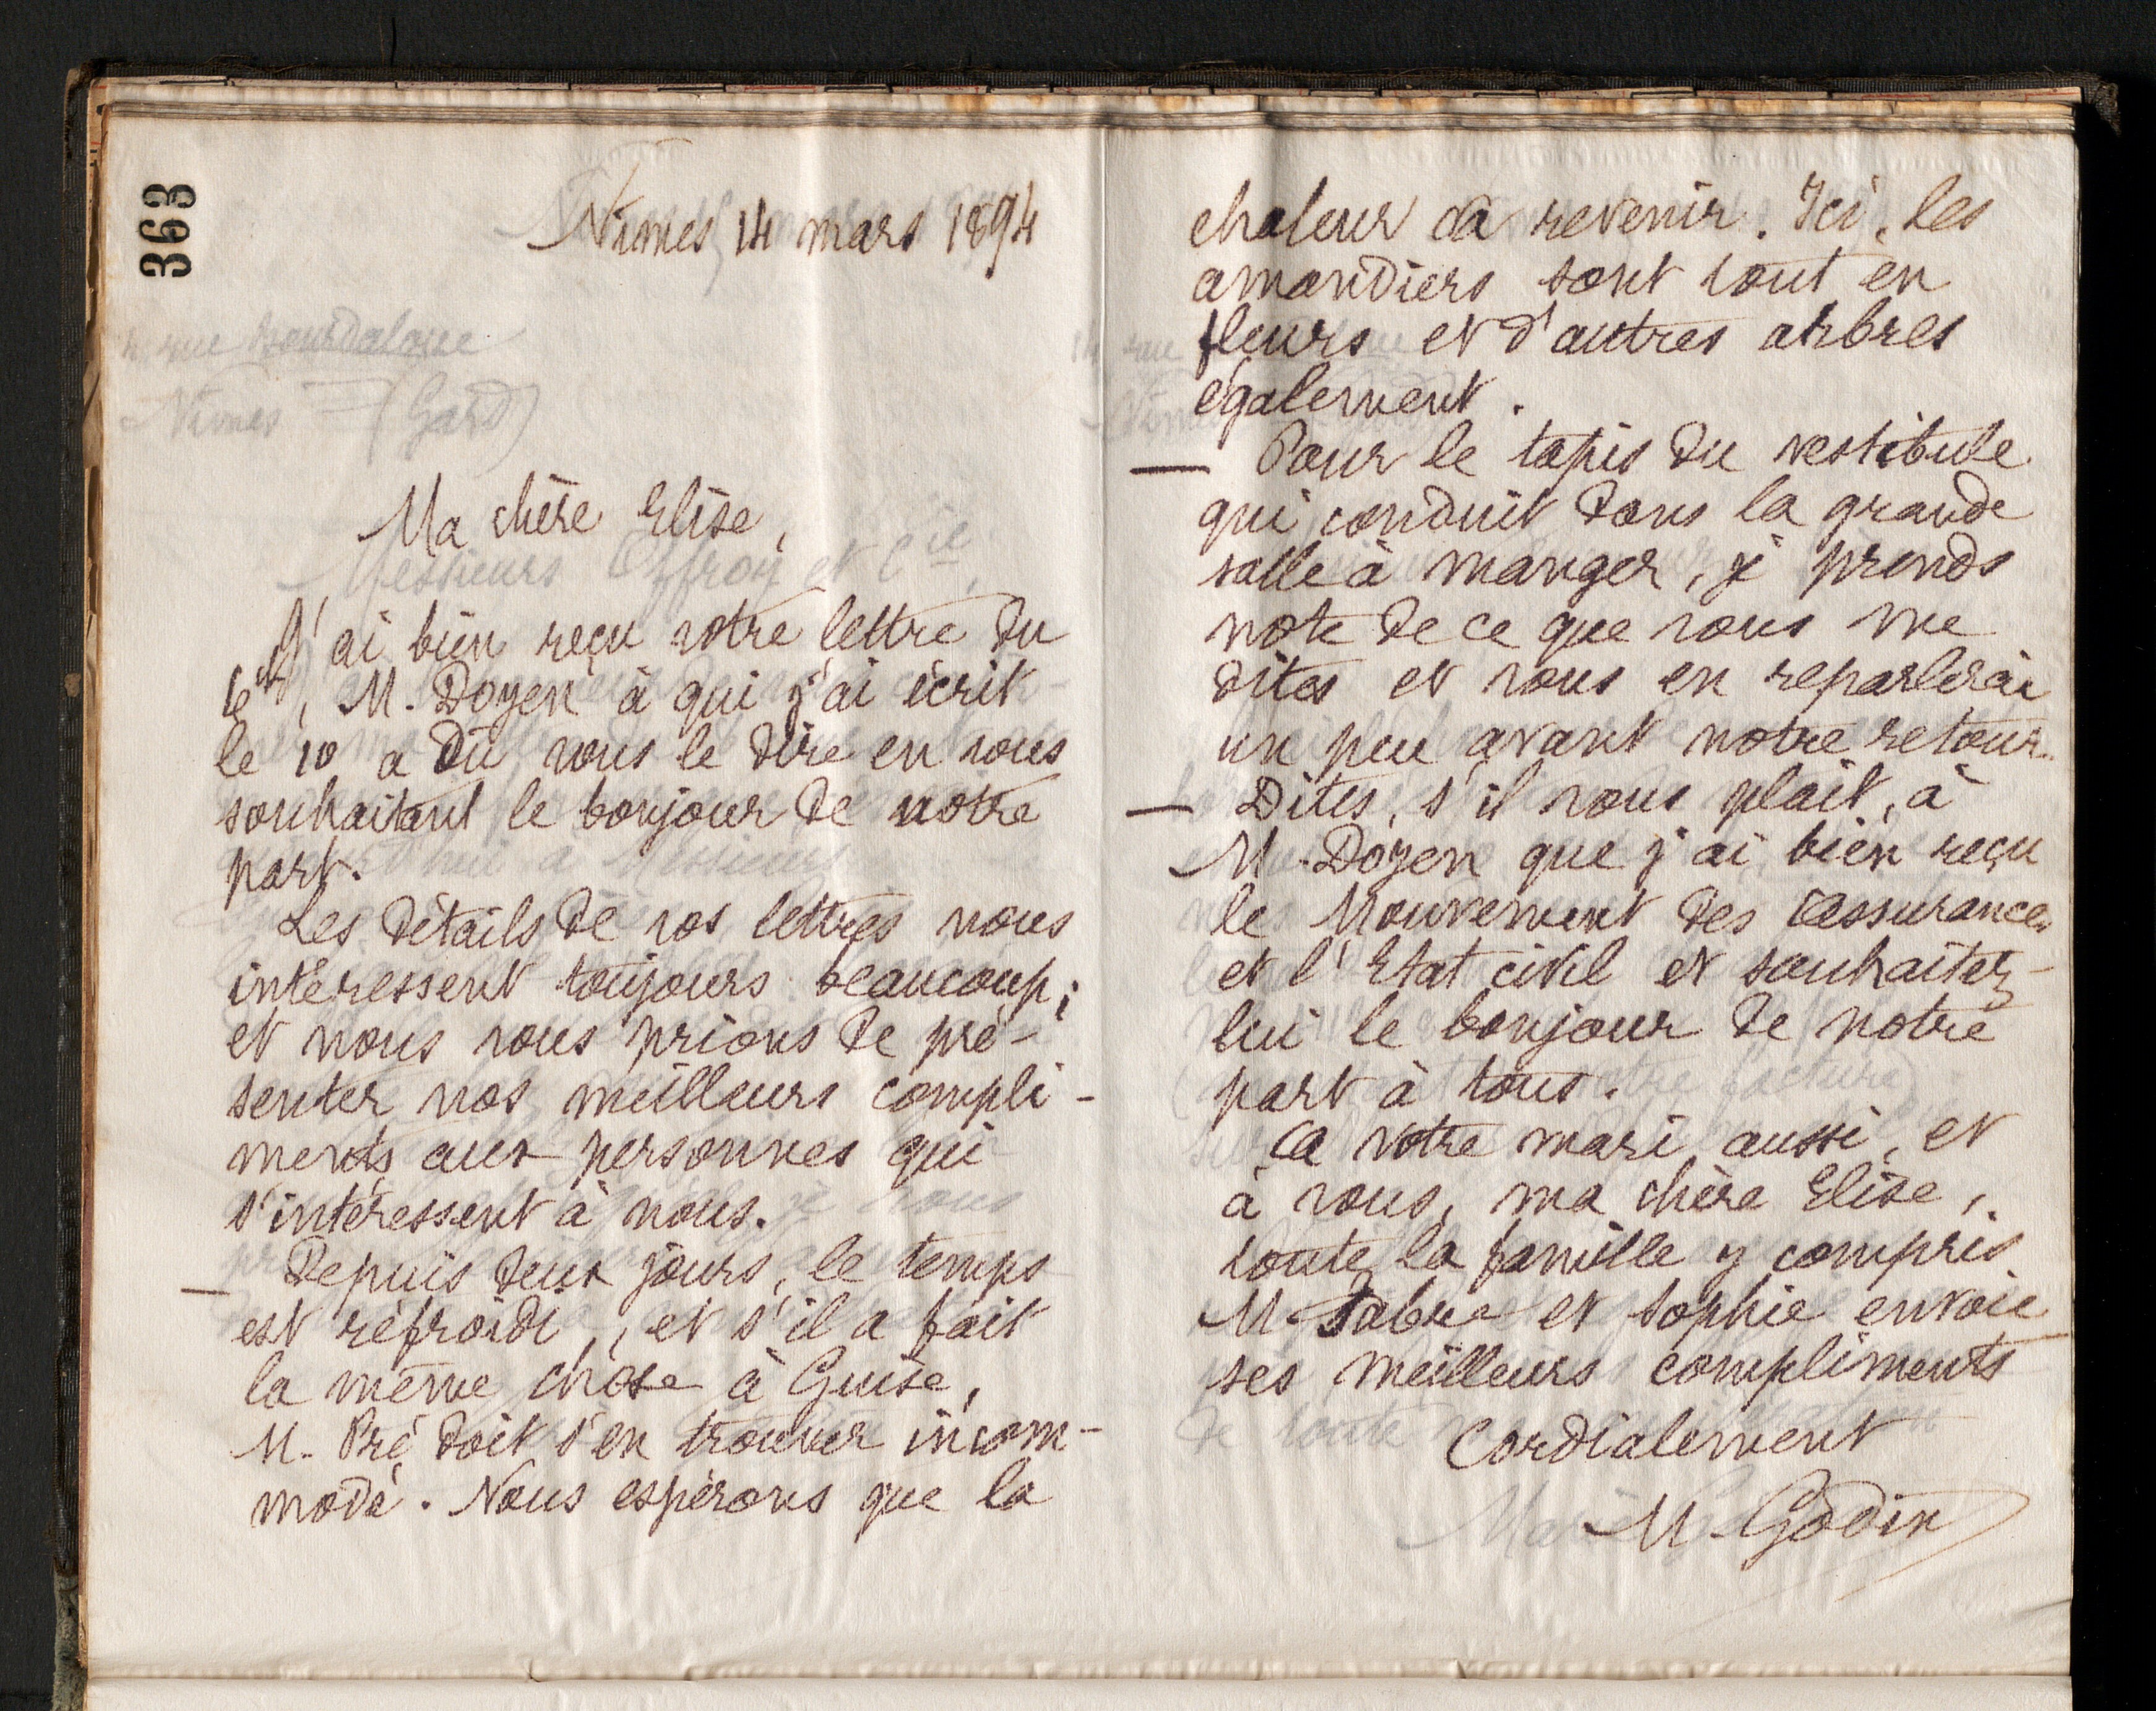 363
Nîmes, 14 mars 1894
Ma chère Elise,
J'ai bien reçu votre lettre du
6 ct, M. Doyen à qui j'ai écrit
le 10 a dû vous le dire en vous
souhaitant le bonjour de notre
part.
Les détails de vos lettres nous
intéressent toujours beaucoup;
et nous vous prions de pré-
senter nos meilleurs compli-
ments aux personnes qui
s'intéressent à nous.
— Depuis deux jours, le temps
est refroidi, et s'il a fait
la même chose à Guise,
M. Pré doit s'en trouver incom-
modé. Nous espérons que la
chaleur va revenir. Ici, les
amandiers sont tout en
fleurs et d'autres arbres
également.
— Pour le tapis du vestibule
qui conduit dans la grande
salle à manger, je prends
note de ce que vous me
dites et vous en reparlerai
un peu avant notre retour.
— Dites, s'il vous plait, à
M. Doyen que j'ai bien reçu
le Mouvement des assurances
et l'Etat civil et souhaitez-
lui le bonjour de notre
part à tous.
A votre mari aussi, et
à vous, ma chère Elise,
toute la famille y compris
M. Fabre et Sophie envoie
ses meilleurs compliments
Cordialement
M. Godin
14 rue Bourdaloue
Nîmes (Gard)
Messieurs Offroy et Cie,